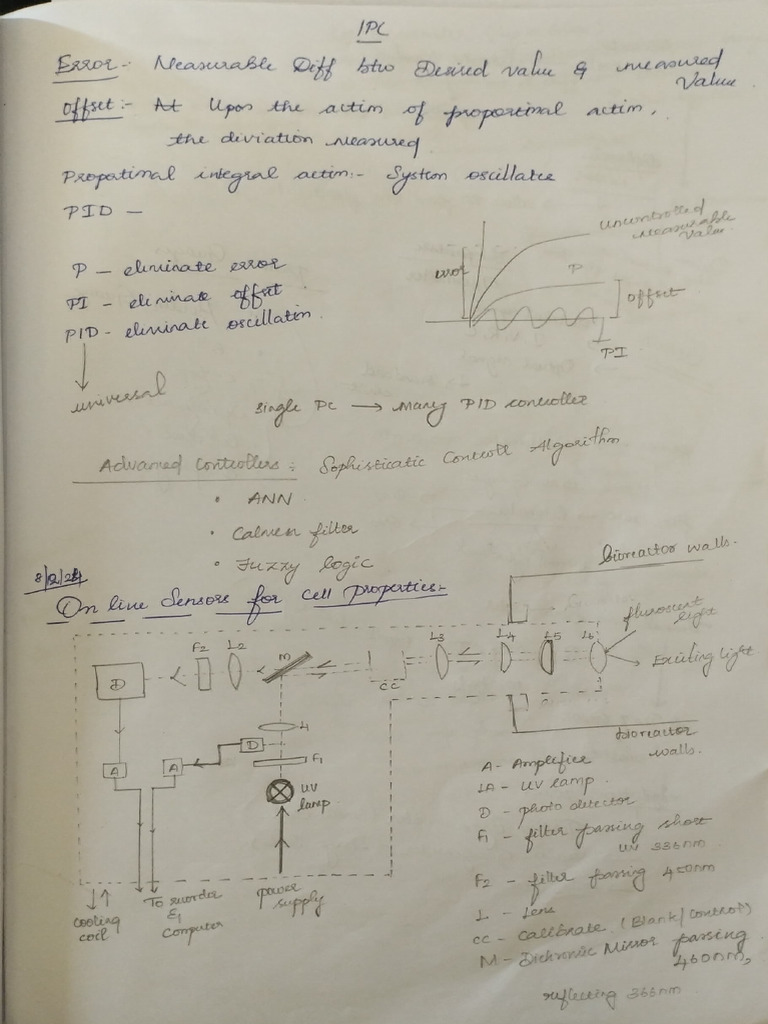 IPC
Error:- Measurable Diff btw Desired value & measured
Value
Offset:- At Upon the action of proportional action,
the deviation measured
Propotional integral action:- System oscillates
PID —
P — eliminate error
PI — eliminate offset
PID - eliminate oscillation
universal
Uncontrolled
Measurable
Value
error
P
offset
PI
single PC → Many PID controller
Advanced Controllers: Sophisticatic Controll Algorithm
• ANN
• Calmen filter
• Fuzzy logic
8/2/24
On line Sensors for cell properties:-
bioreactor walls.
fluroscent
light
Exciting light
D
F2
L2
M
CC
L3
L4
L5
L6
L1
D
F1
A
A
UV
lamp
bioreactor
walls.
cooling
coil
To recorder
&
computer
power
supply
A - Amplifier
LA - UV lamp
D - photo detector
F1 - filter passing short
UV 336nm
F2 - filter passing 460nm
L - Lens
CC - Calibrate (Blank/Control)
M - Dichronic Mirror passing
460nm,
reflecting 366nm